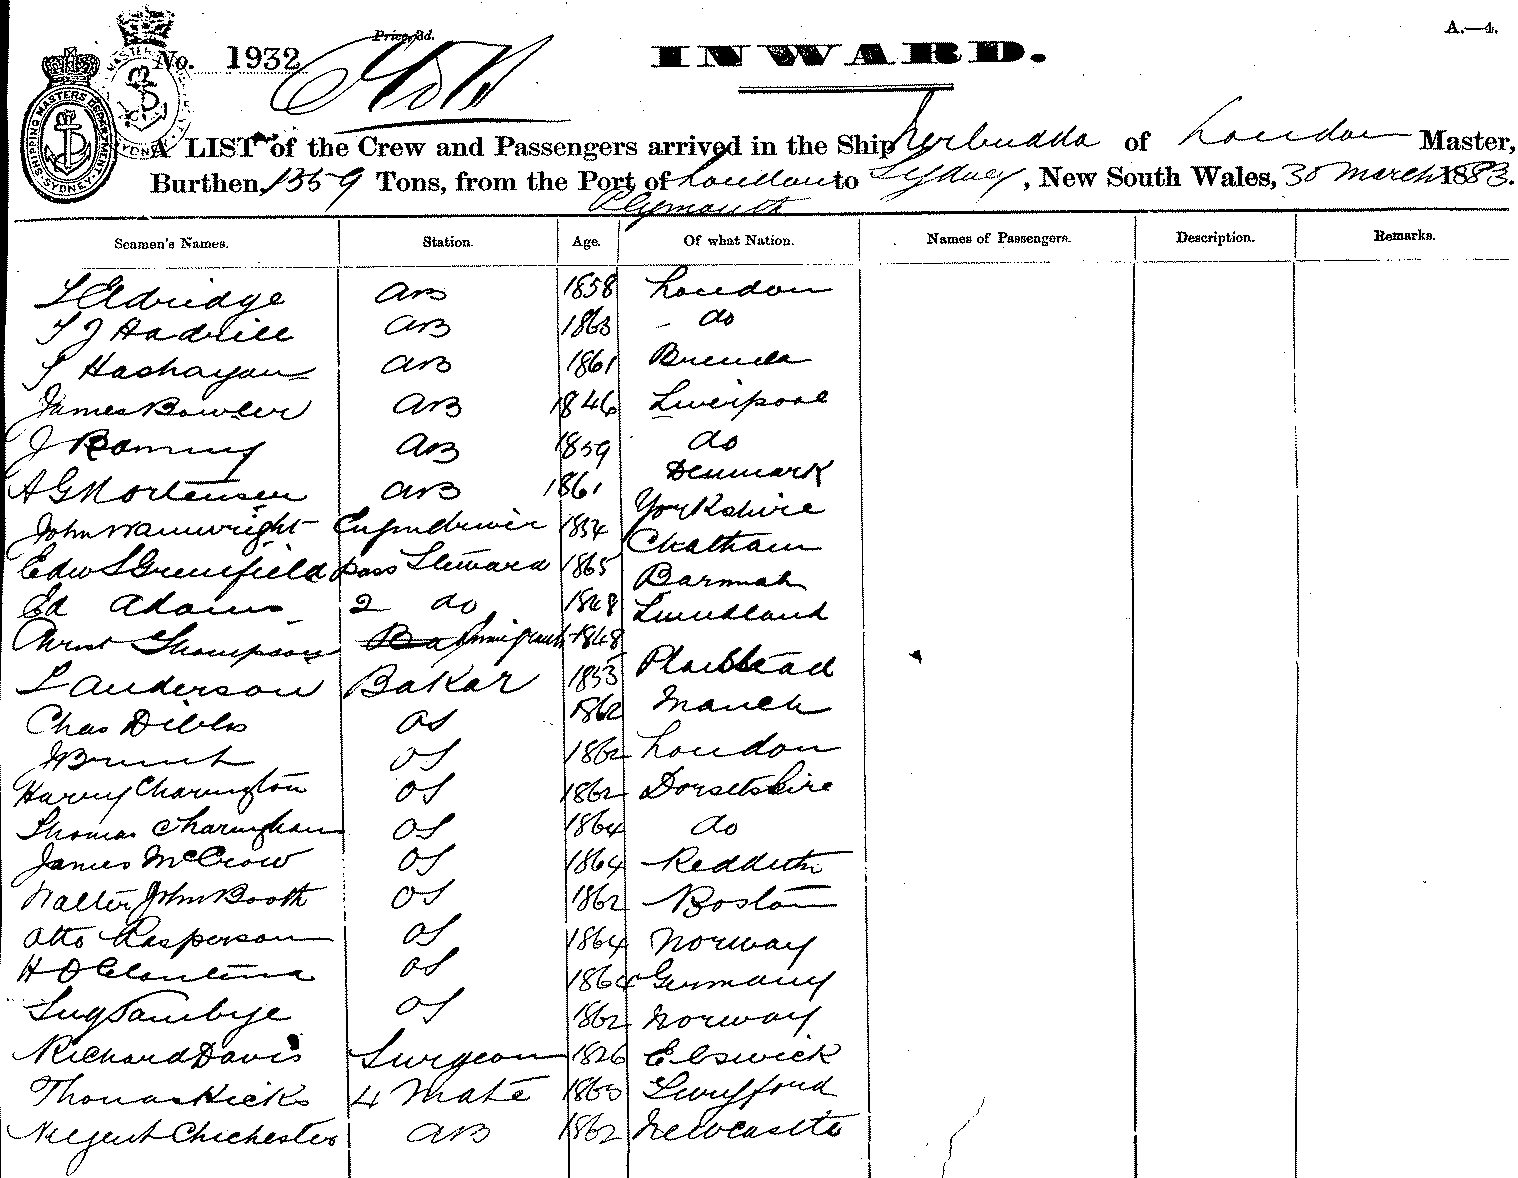 A.—4.
Price, 3d.
No. 1932
INWARD.
SHIPPING MASTERS DEPARTMENT SYDNEY
A LIST of the Crew and Passengers arrived in the Ship Nerbudda of London Master,
Burthen, 1359 Tons, from the Port of London to Sydney, New South Wales, 30 March 1883.
Plymouth
Seamen's Names. Station. Age. Of what Nation. Names of Passengers. Description. Remarks.
L Eldridge AB 1858 London
T J Hadrill AB 1863 do
AB 1861
James Bowler AB 1846 Liverpool
J AB 1859 do
A G Mortensen AB 1861 Denmark
John Wainwright Engindriver 1854 Yorkshire
Edw S Greenfield pass Steward 1865 Chatham
Ed Adams 2 do 1848
Christ Thompson 1848
L Anderson Bakar 1853 Plaistead
Chas Dibbs OS 1862 Manch
J Brunt OS 1862 London
Harry Charington OS 1862 Dorsetshire
Thomas OS 1864 do
James McCrow OS 1864
Walter John Booth OS 1862 Boston
Otto Kasperson OS 1864 Norway
H O OS 1864 Germany
OS 1862 Norway
Richard Davis Surgeon 1826 Elswick
Thomas Hicks 4 Mate 1863 Twyfford
Nugent Chichester AB 1862 Newcastle